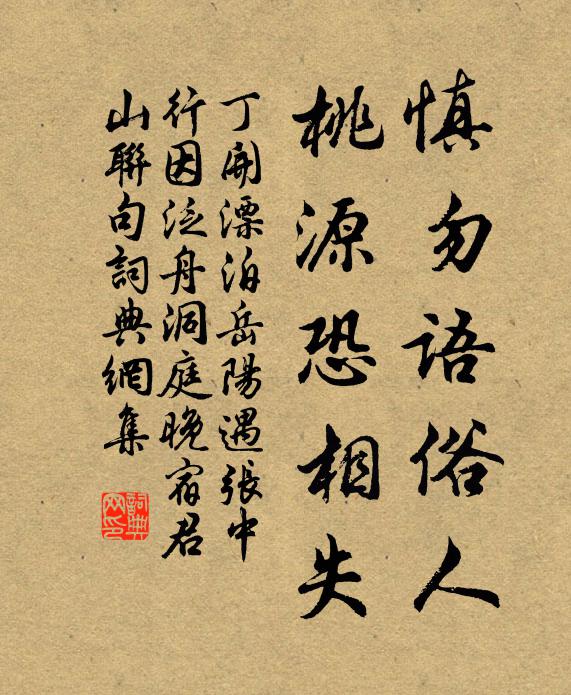 慎勿語俗人
桃源恐相失
丁開漂泊岳陽遇張中
行因泛舟洞庭晚宿君
山聯句詞典網集
詞典网印